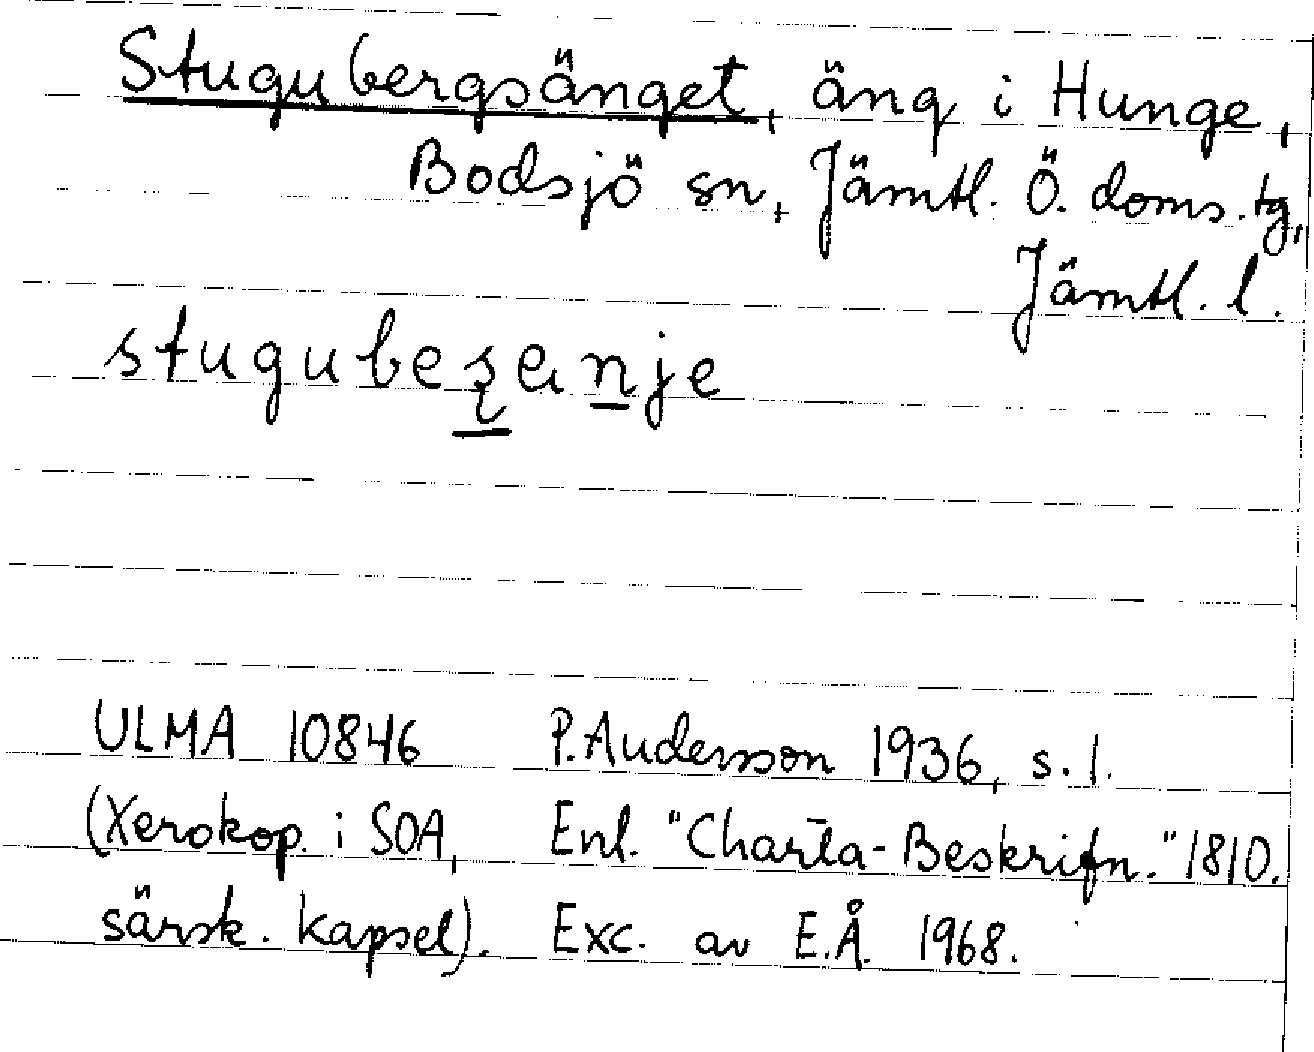 Stugubergsänget, äng i Hunge,
Bodsjö sn, Jämtl. Ö. doms. tg,
Jämtl. l.
ULMA 10846 P. Andersson 1936, s. 1.
(Xerokop. i SOA, Enl. "Charta-Beskrifn." 1810.
särsk. kapsel). Exc. av E.Å. 1968.